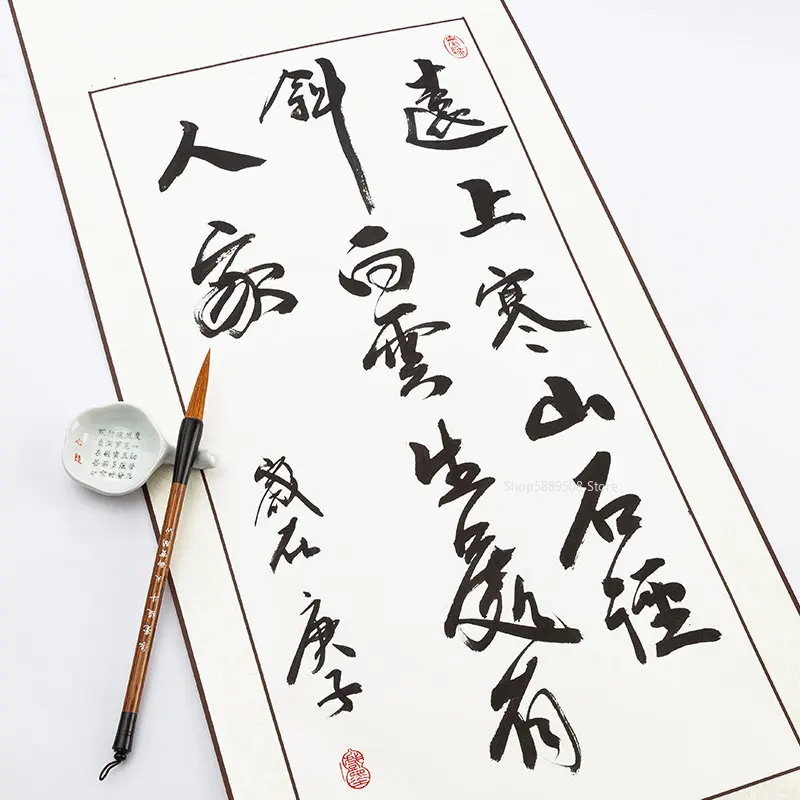 遠上寒山石徑
斜白雲生處有
人家
歲在庚子
Shop5889508 Store